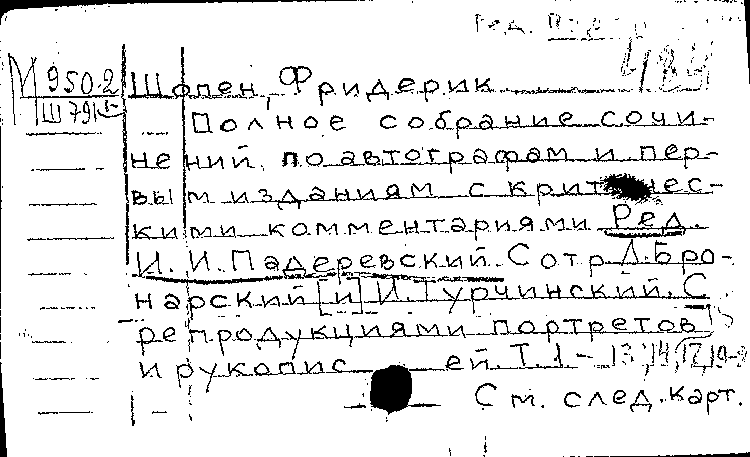 Ред.
484
М950.2
Ш791
Шопен, Фридерик
Полное собрание сочи-
нений, по автографам и пер-
вым изданиям с критичес-
кими комментариями Ред.
И. И. Падеревский. Сотр Л. Бро-
нарский [и] И. Турчинский. С
репродукциями портретов
и рукописей. Т. 1-13, 14, 17, 19-
См. след. карт.